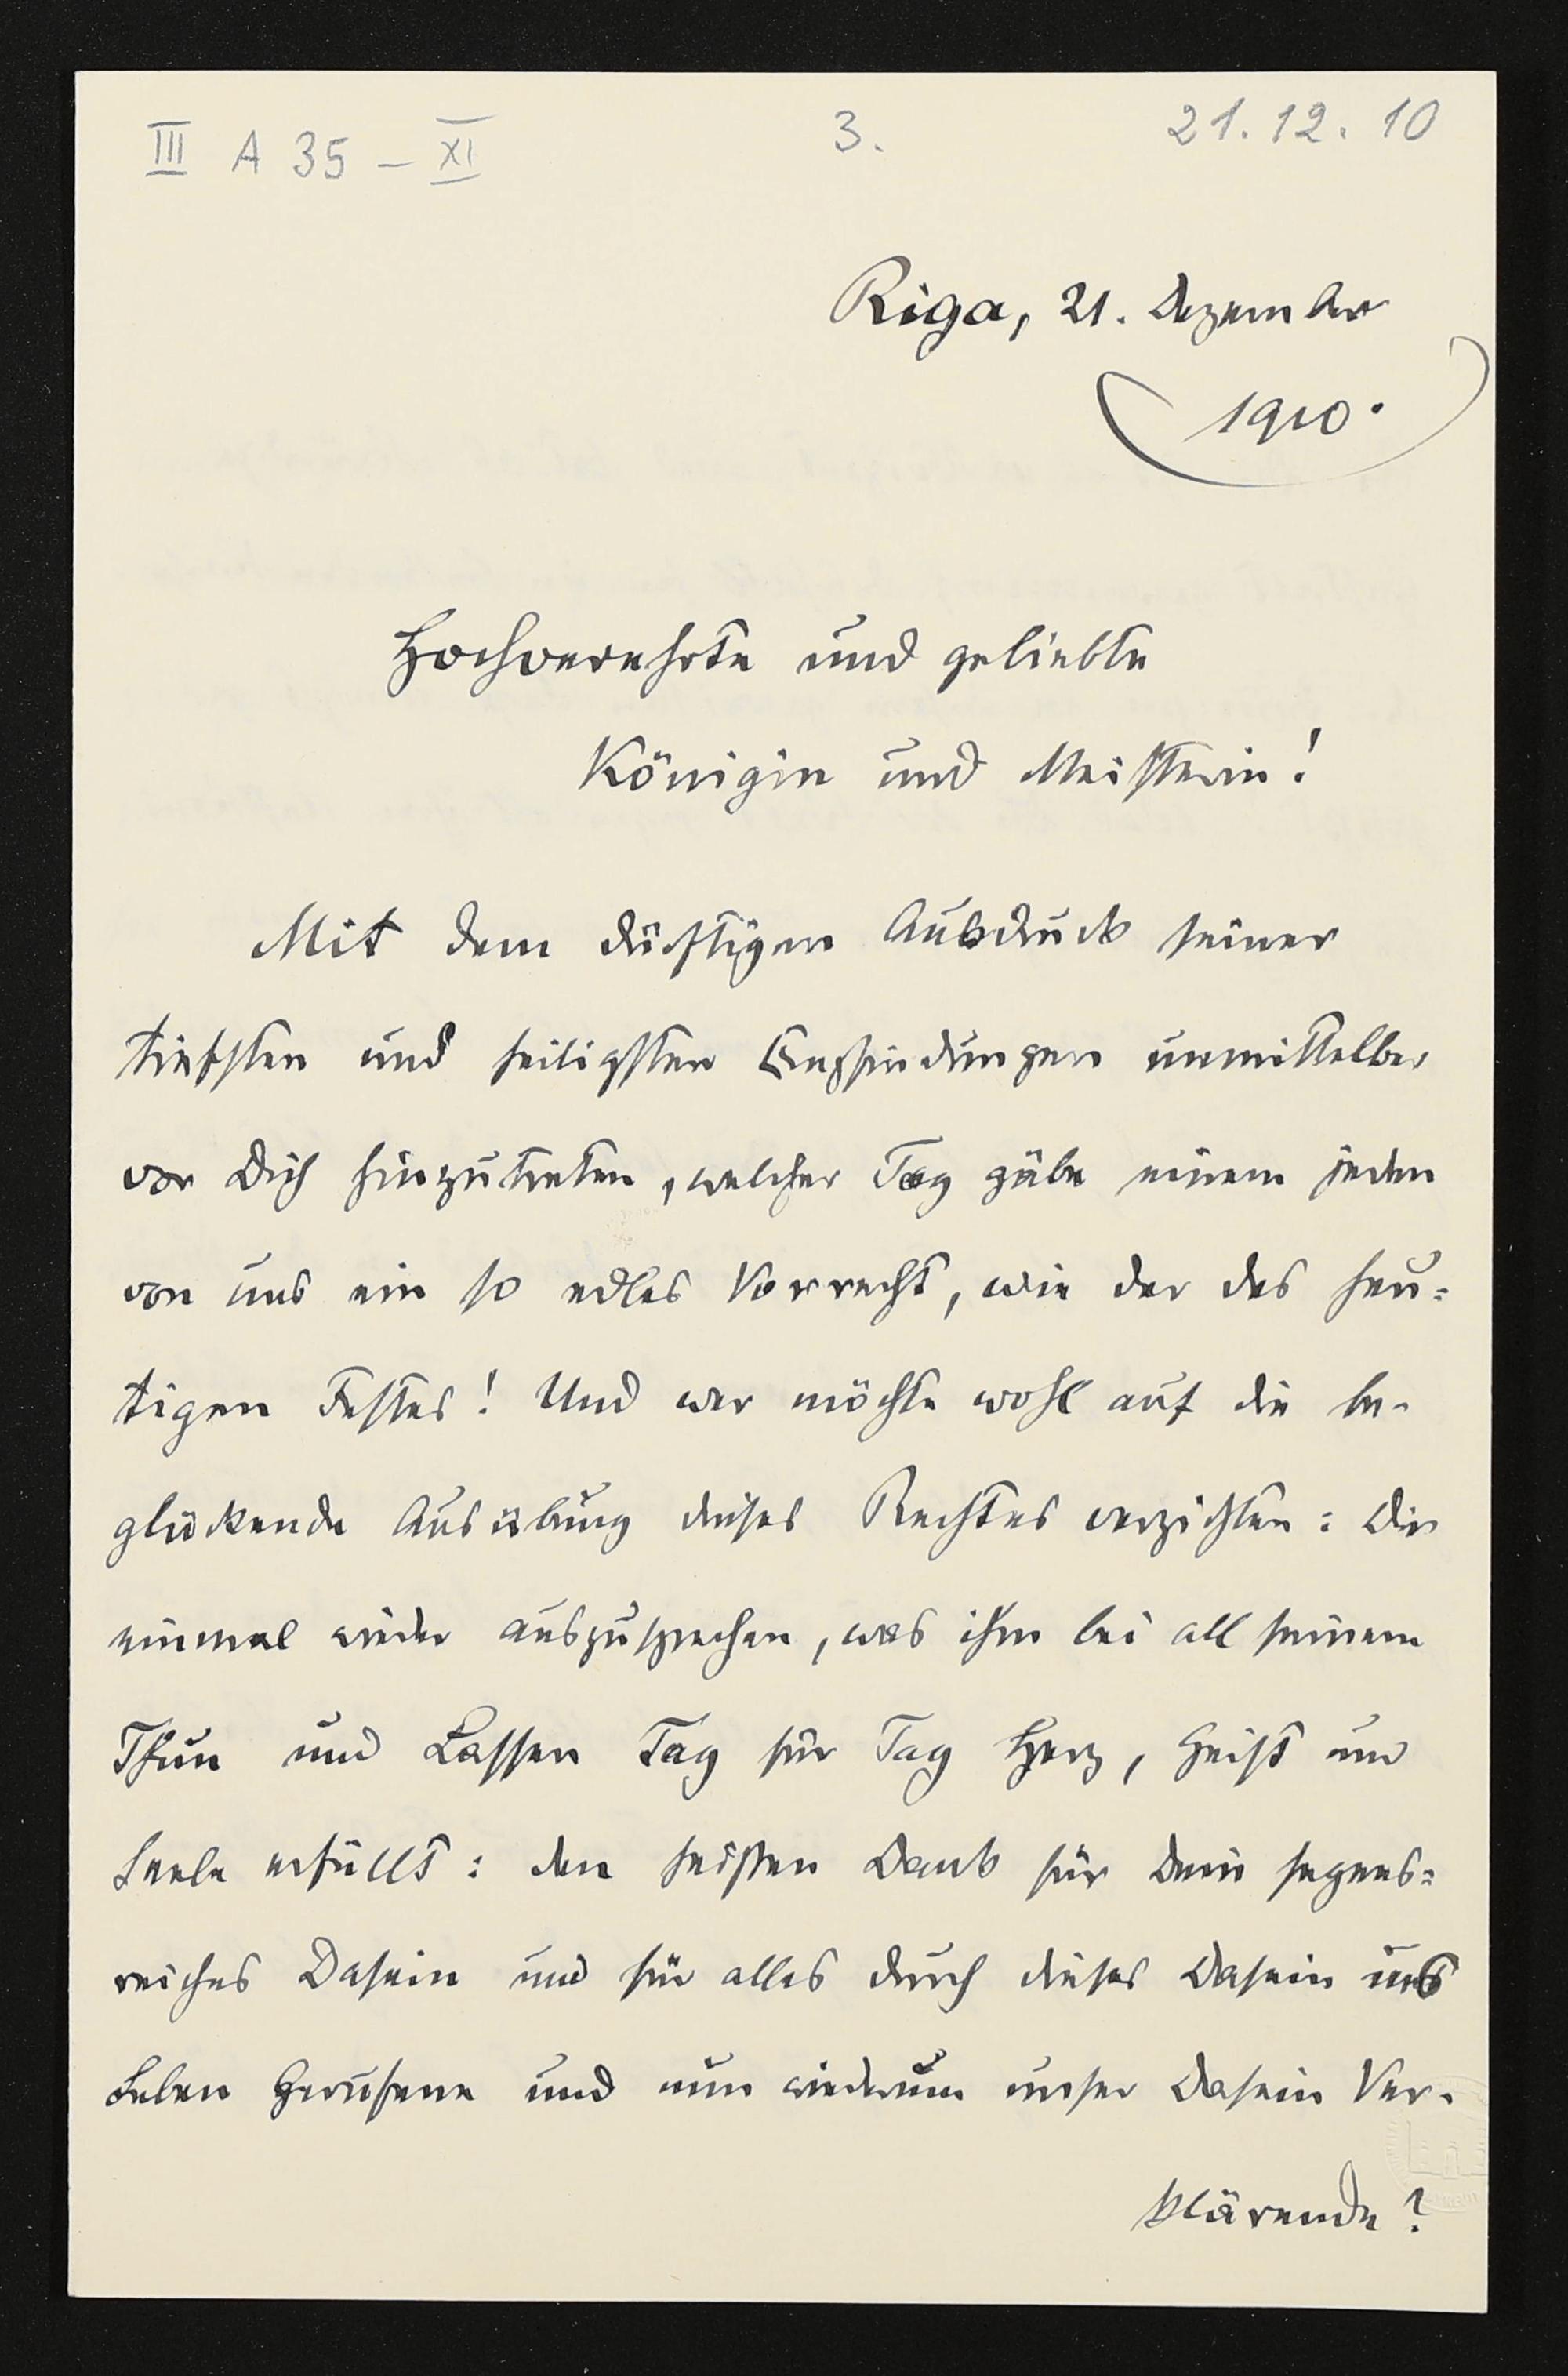 III A 35 – XI
3.
21.12.10
Riga, 21. Dezember
1910.
Hochverehrte und geliebte
Königin und Meisterin!
Mit dem dürftigen Ausdruck seiner
tiefsten und heiligsten Empfindungen unmittelbar
vor Dich hinzutreten, welcher Tag gäbe einem jeden
von uns ein so edles Vorrecht, wie der des heu-
tigen Festes! Und wer möchte wohl auf die be-
glückende Ausübung dieses Rechtes verzichten: Dir
einmal wieder auszusprechen, was ihm bei all seinem
Thun und Lassen Tag für Tag Herz, Geist und
Seele erfüllt: den heißen Dank für Dein segens-
reiches Dasein und für alles durch dieses Dasein ins
Leben Gerufene und nun wiederum unser Dasein Ver-
klärende?